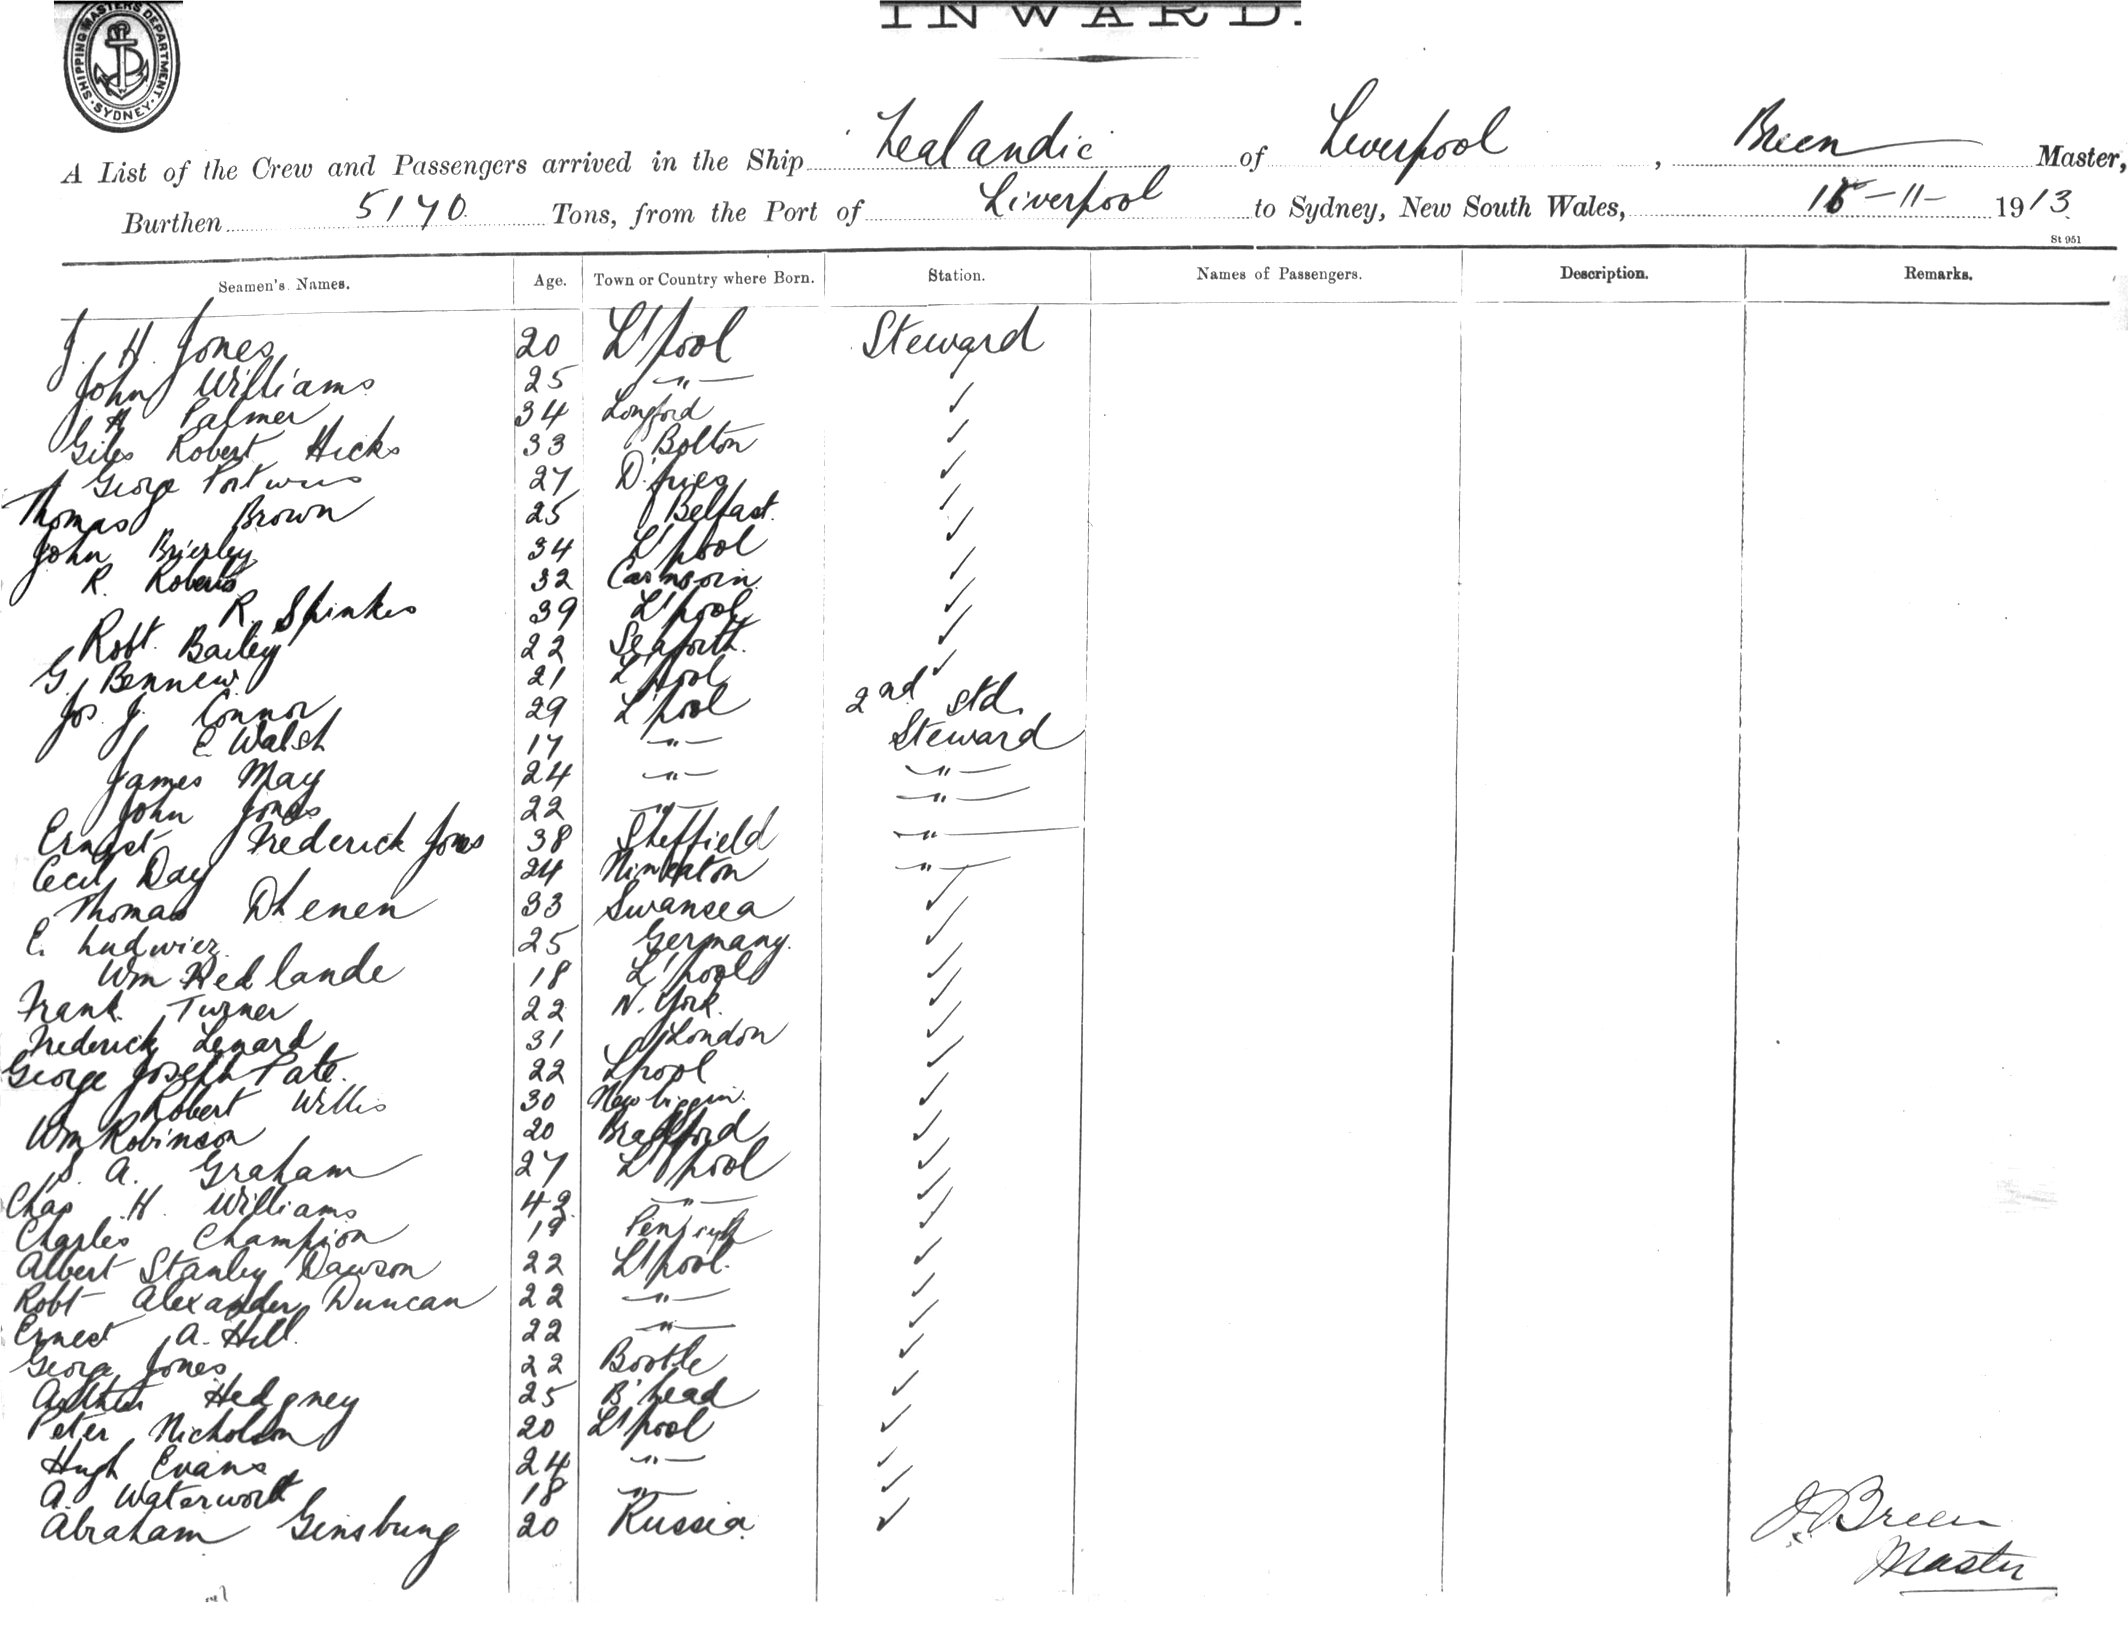 SHIPPING MASTERS DEPARTMENT · SYDNEY ·
INWARD.
A List of the Crew and Passengers arrived in the Ship Zealandic of Liverpool, Breen Master,
Burthen 5140 Tons, from the Port of Liverpool to Sydney, New South Wales, 15-11- 1913
St 951
Seamen's Names. Age. Town or Country where Born. Station. Names of Passengers. Description. Remarks.
J. H. Jones 20 L'pool Steward
John Williams 25 — " — ✓
H Palmer 34 Longford ✓
Giles Robert Hicks 33 Bolton ✓
George Portwus 27 D'fries ✓
Thomas Brown 25 Belfast. ✓
John Brierley 34 L'pool ✓
R. Roberts 32 ✓
R. Spinks 39 L'pool ✓
Robt. Bailey 22 Seaforth. ✓
G. Bennew 21 L'pool
Jos. J. Connor 29 L'pool 2nd Std.
J E Walsh 17 — " — Steward
James May 24 — " — — " —
John Jones 22 — " — — " —
Ernest Frederick Jones 38 Sheffield — " —
Cecil Day 24 Nuneaton — " —
Thomas Dhenen 33 Swansea ✓
E. Ludwiez 25 Germany. ✓
Wm Redlande 18 L'pool ✓
Frank Turner 22 N. York. ✓
Frederick Lenard 31 London ✓
George Joseph Pate. 22 L'pool ✓
Robert Willis 30 Newbiggin. ✓
Wm Robinson 20 Bradford ✓
S. A. Graham 27 L'pool ✓
Chas H. Williams 42 — " — ✓
Charles Champion 19 ✓
Albert Stanley Dawson 22 L'pool. ✓
Robt Alexander Duncan 22 — " — ✓
Ernest A. Hill. 22 — " — ✓
George Jones 22 Bootle ✓
Arthur Hedgney 25 B'head ✓
Peter Nicholson 20 L'pool ✓
Hugh Evans 24 — " — ✓
A. Waterworth 18 — " — ✓
Abraham Ginsburg 20 Russia. ✓
J. Breen
Master